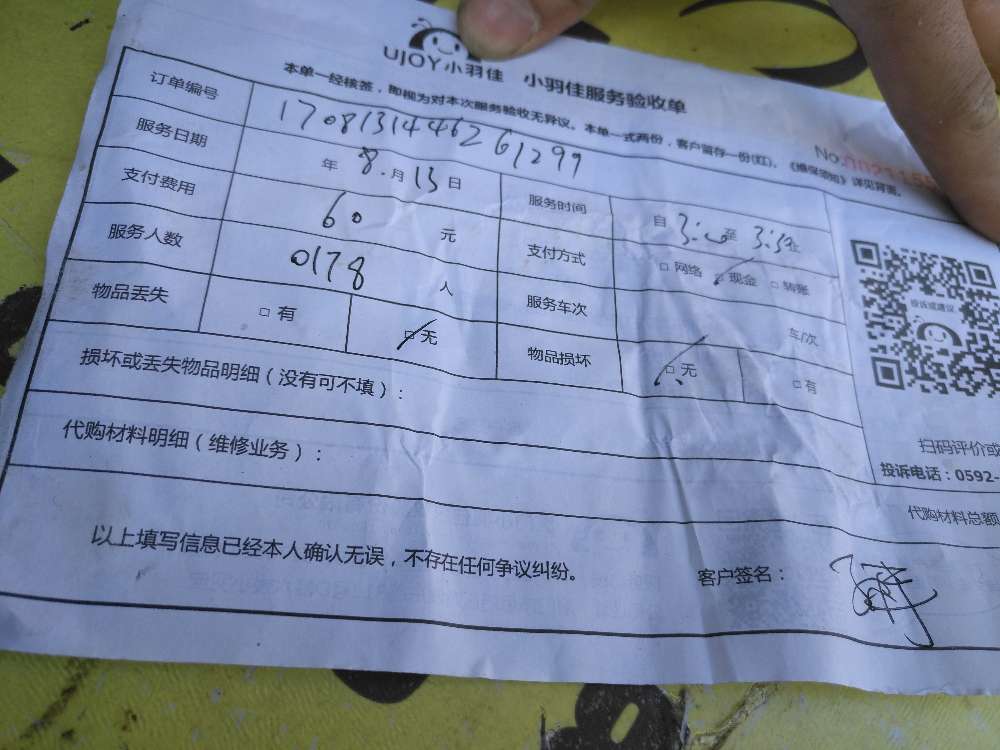 UJOY小羽佳 小羽佳服务验收单
本单一经核签，即视为对本次服务验收无异议。本单一式两份，客户留存一份(红)。《维保须知》详见背面。
No.
订单编号 1708131446261299
服务日期 年 8.月 13 日 服务时间 自 3: 至 3:
支付费用 60 元 支付方式 □网络 □现金 □转账
服务人数 0178 人 服务车次 车/次
物品丢失 □有 □无 物品损坏 □无 □有
投诉或建议
损坏或丢失物品明细（没有可不填）：
扫码评价或
代购材料明细（维修业务）：
投诉电话：0592-
代购材料总额
以上填写信息已经本人确认无误，不存在任何争议纠纷。 客户签名：